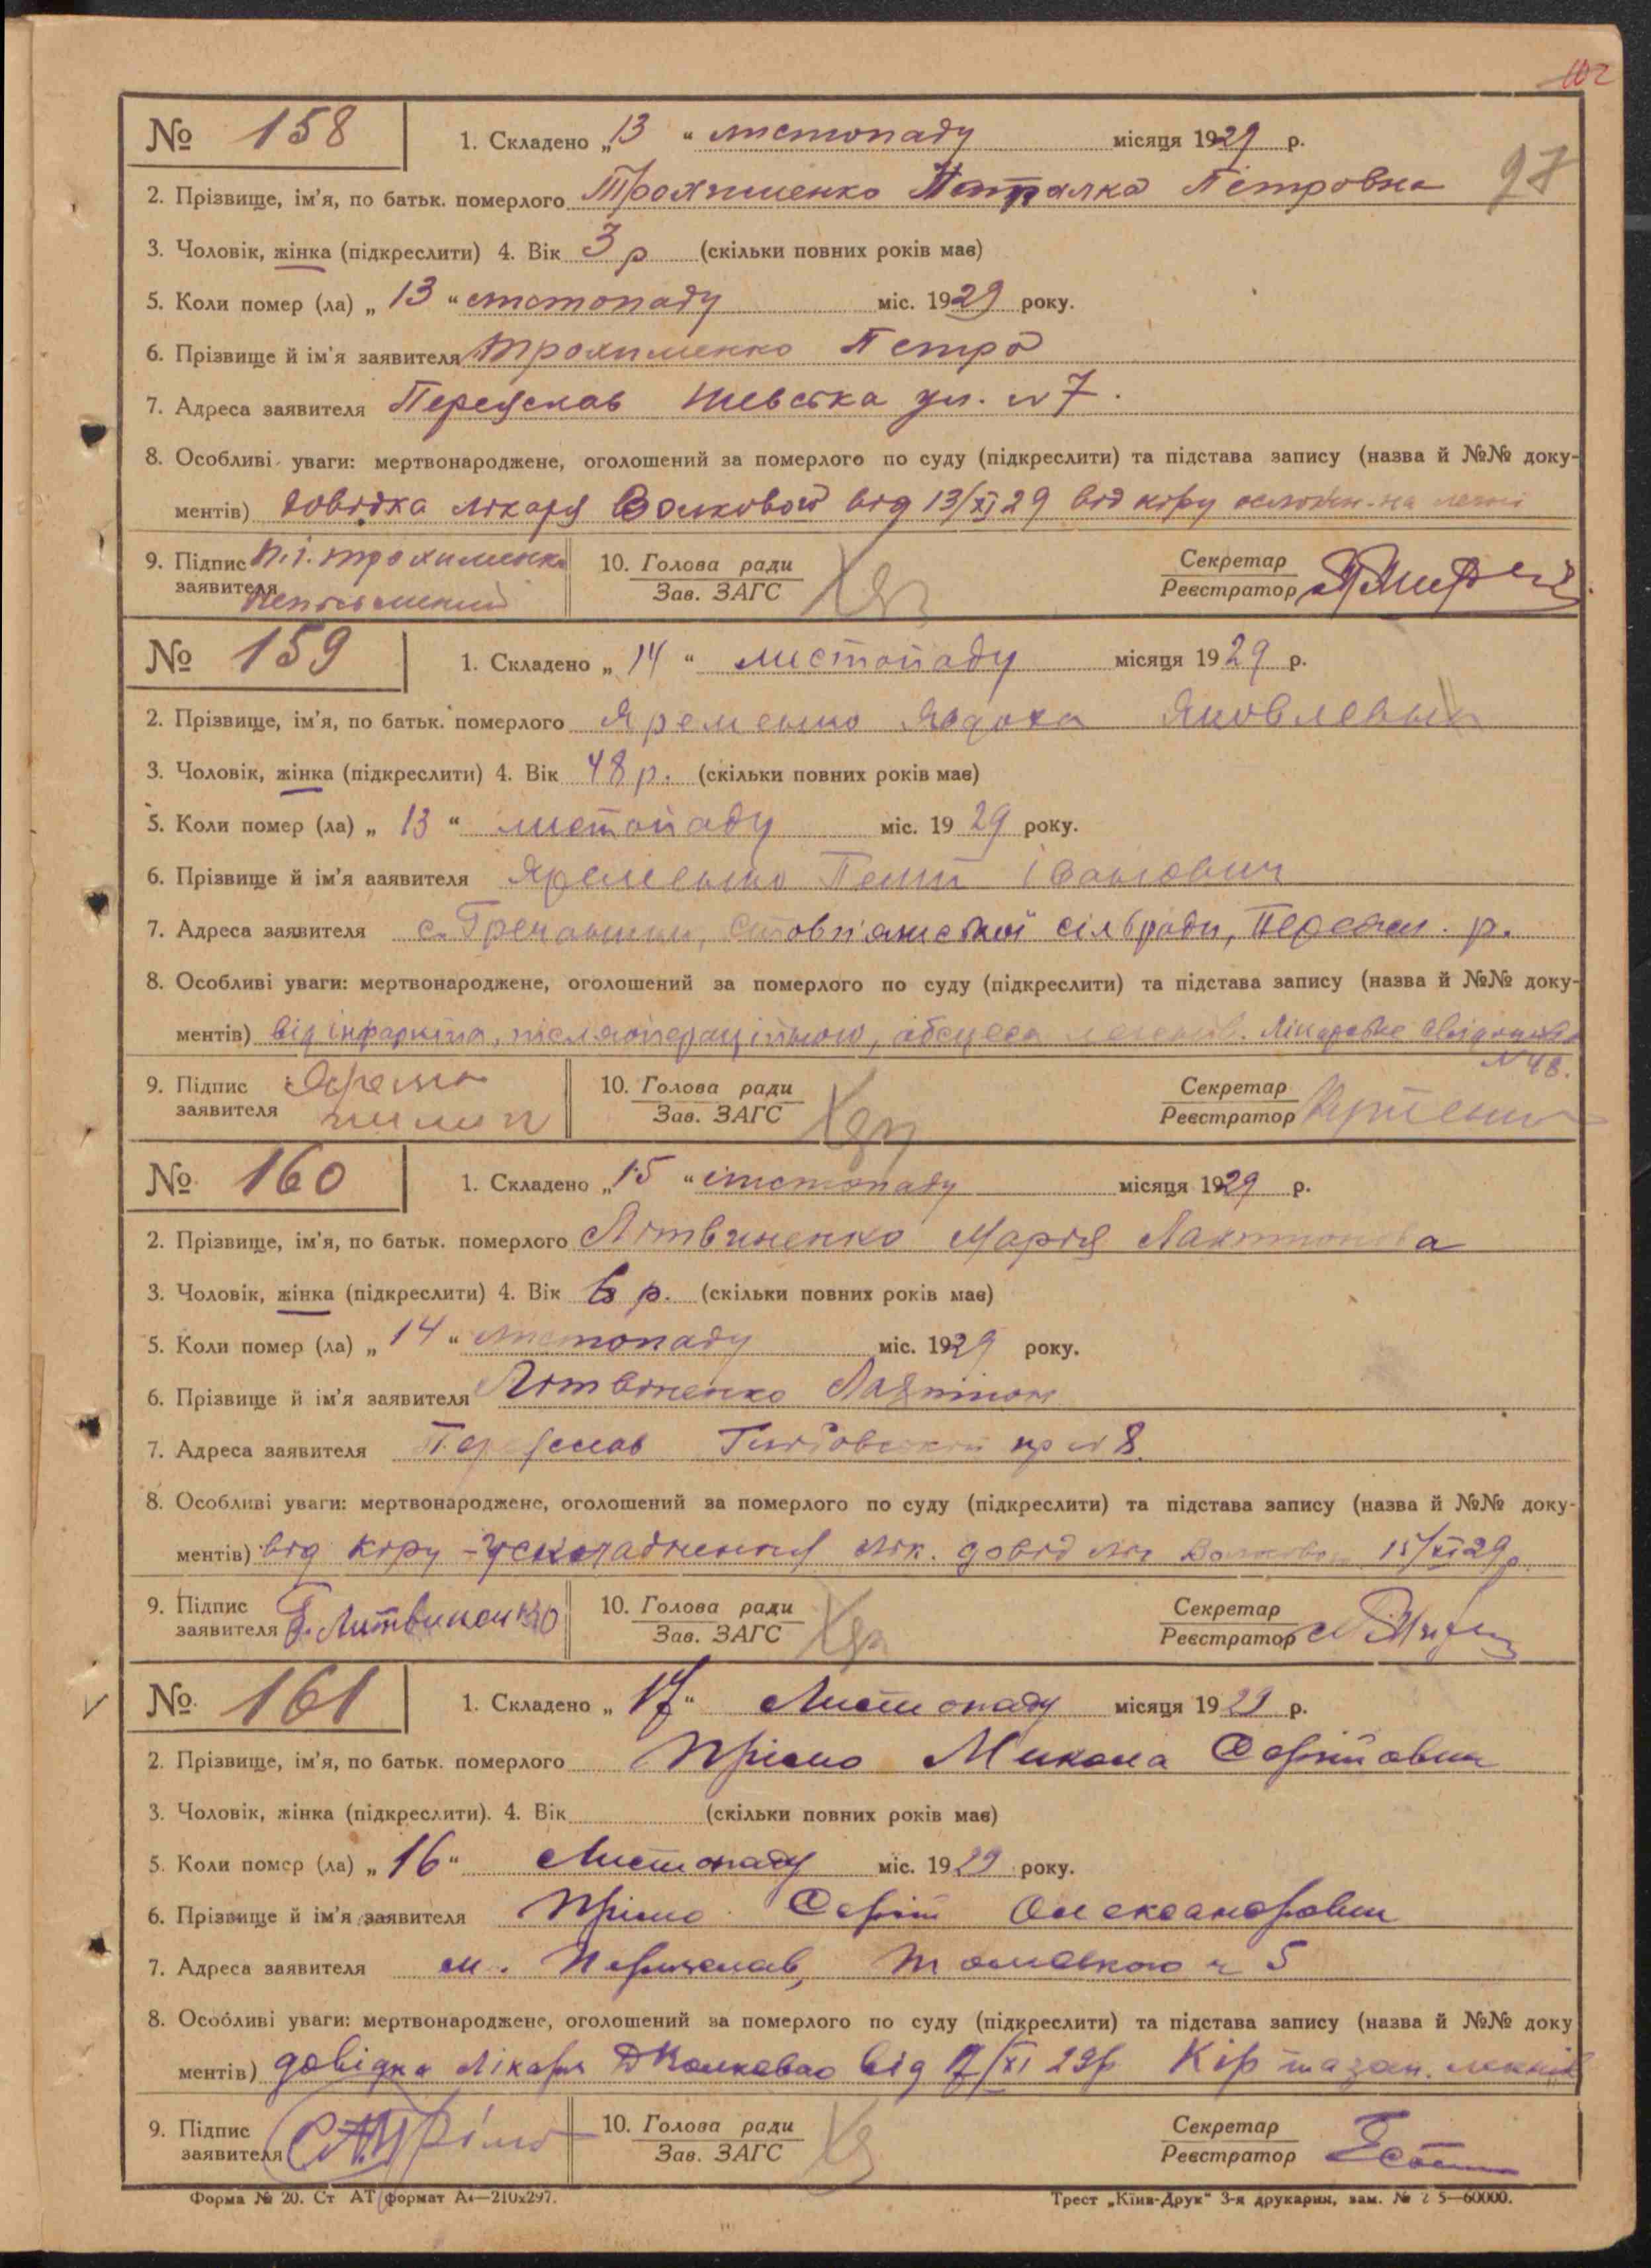 102
№ 158 1. Складено „13“ листопаду місяця 1929 р.
97
2. Прізвище, ім'я, по батьк. померлого Трохименко Наталка Петровна
3. Чоловік, жінка (підкреслити) 4. Вік 3 р (скільки повних років має)
5. Коли помер (ла) „13“ листопаду міс. 1929 року.
6. Прізвище й ім'я заявителя Трохименко Петро
7. Адреса заявителя Переяслав ул. №7.
8. Особливі уваги: мертвонароджене, оголошений за померлого по суду (підкреслити) та підстава запису (назва й №№ доку-
ментів) довідка лікаря Волковой від 13/XI 29 від кору на легкі
9. Підпис Трохименко 10. Голова ради Секретар
заявителя Зав. ЗАГС Реєстратор
№ 159 1. Складено „14“ листопаду місяця 1929 р.
2. Прізвище, ім'я, по батьк. померлого Яременко Явдоха Яковлевна
3. Чоловік, жінка (підкреслити) 4. Вік 48 р. (скільки повних років має)
5. Коли помер (ла) „13“ листопаду міс. 1929 року.
6. Прізвище й ім'я заявителя Яременко Іванович
7. Адреса заявителя с. Гречаники, Стовп'яжської сільради, Переясл. р.
8. Особливі уваги: мертвонароджене, оголошений за померлого по суду (підкреслити) та підстава запису (назва й №№ доку-
ментів) від інфаркта, післяопераційного, абсцеса легенів. Лікарське свідоцтво
№48.
9. Підпис 10. Голова ради Секретар
заявителя Зав. ЗАГС Реєстратор
№ 160 1. Складено „15“ листопаду місяця 1929 р.
2. Прізвище, ім'я, по батьк. померлого Літвиненко Марія
3. Чоловік, жінка (підкреслити) 4. Вік 6 р. (скільки повних років має)
5. Коли помер (ла) „14“ листопаду міс. 1929 року.
6. Прізвище й ім'я заявителя Літвіненко
7. Адреса заявителя Переяслав № 8.
8. Особливі уваги: мертвонароджене, оголошений за померлого по суду (підкреслити) та підстава запису (назва й №№ доку-
ментів) від кору - ускладнення лік. довід Волковой 15/XI 29р.
9. Підпис Литвиненко 10. Голова ради Секретар
заявителя Зав. ЗАГС Реєстратор
№ 161 1. Складено „17“ Листопаду місяця 1929 р.
2. Прізвище, ім'я, по батьк. померлого Прімо Микола Сергійович
3. Чоловік, жінка (підкреслити). 4. Вік (скільки повних років має)
5. Коли помер (ла) „16“ Листопаду міс. 1929 року.
6. Прізвище й ім'я заявителя Прімо Сергій Олександрович
7. Адреса заявителя м. Переяслав, 5
8. Особливі уваги: мертвонароджене, оголошений за померлого по суду (підкреслити) та підстава запису (назва й №№ доку
ментів) довідка Лікаря Волкової від 17/XI 29р Кір та зап. легенів
9. Підпис 10. Голова ради Секретар
заявителя Зав. ЗАГС Реєстратор
Форма № 20. Ст АТ формат А4—210х297. Трест „Київ-Друк“ 3-я друкарня, зам. № 5—60000.